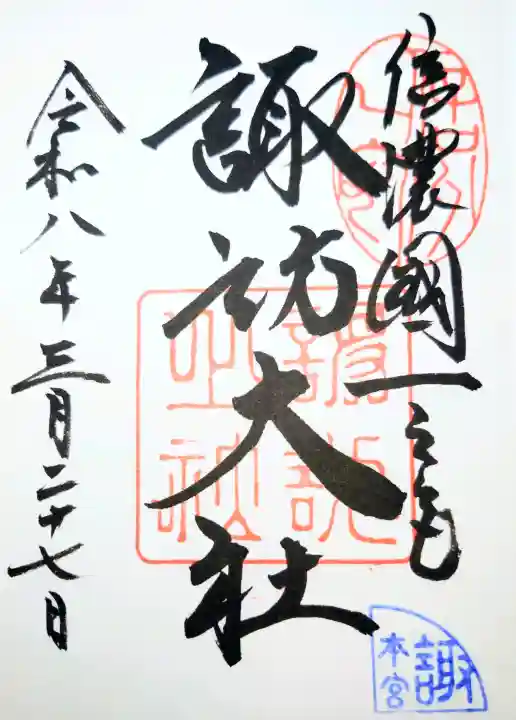 信濃國一之宮
諏訪大社
令和八年三月二十七日
諏
本宮